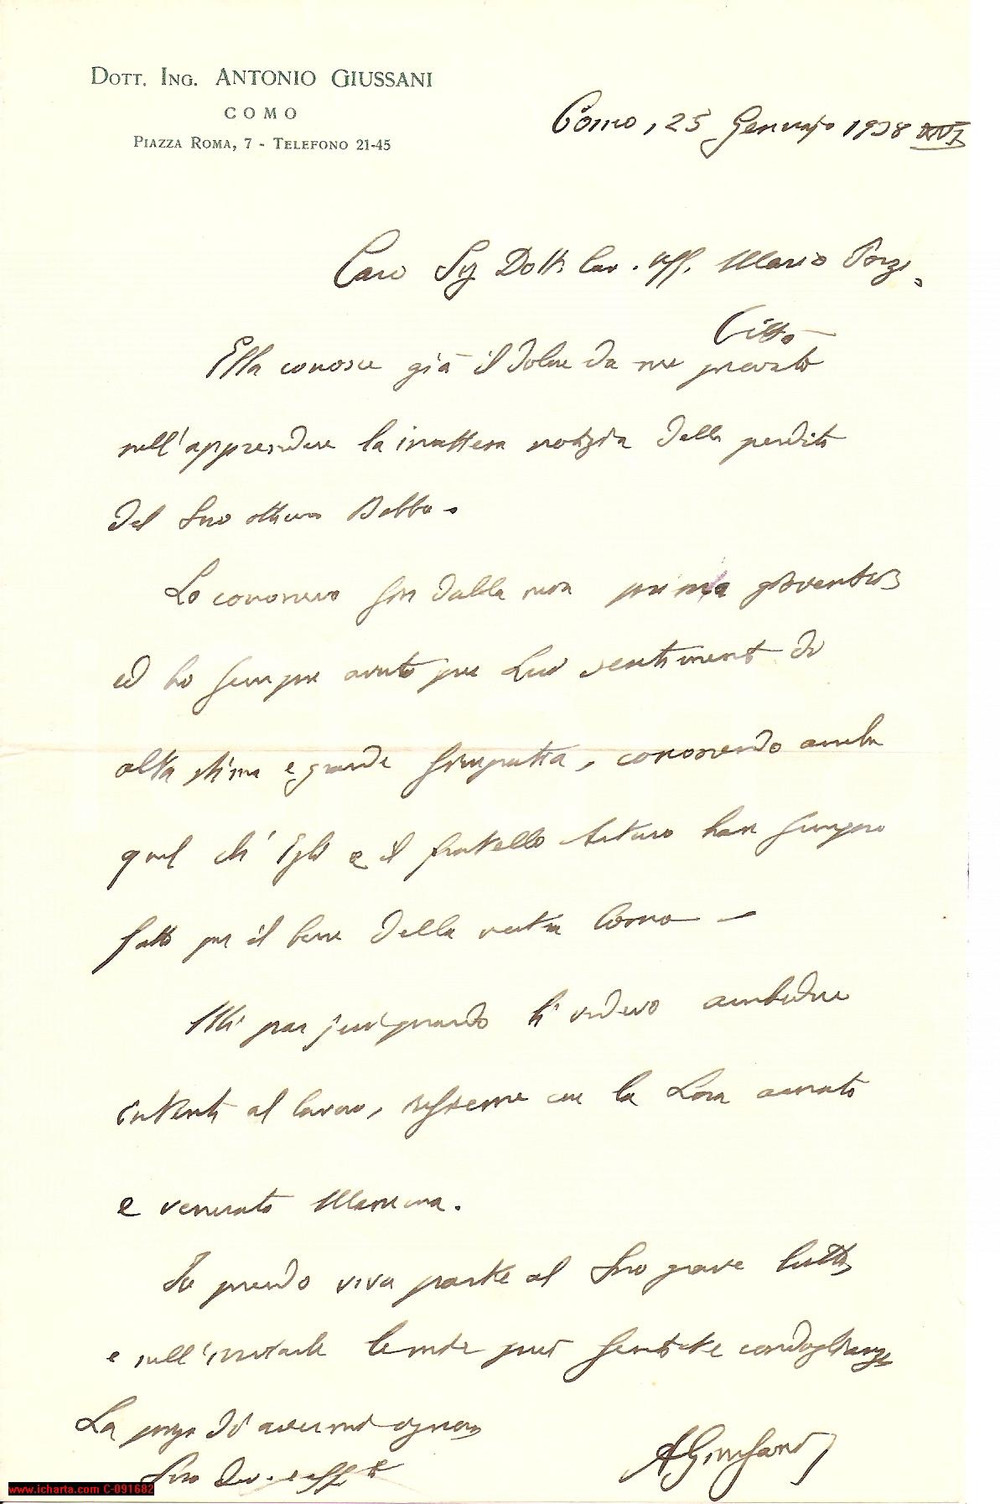 Dott. Ing. ANTONIO GIUSSANI
COMO
Piazza Roma, 7 - Telefono 21-45
Como, 25 Gennajo 1938 XVI
Caro Sig Dott. Cav. Uff. Mario Porzi.
Città
Ella conosce già il dolore da me provato
nell'apprendere la inattesa notizia della perdita
del Suo ottimo Babbo.
Lo conoscevo fin dalla mia prima gioventù
ed ho sempre avuto per Lui sentimenti di
alta stima e grande simpatia, conoscendo anche
quel ch'Egli e il fratello Arturo han sempre
fatto per il bene della nostra Como -
Mi par li vedevo ambedue
intenti al lavoro, insieme con la Loro amata
e venerata Mamma.
Io prendo viva parte al Suo grave lutto
e nell'inviarle le mie più sentite condoglianze
La prego di avermi ognora
Suo Dev. e aff.
AGiussani
www.icharta.com C-091682